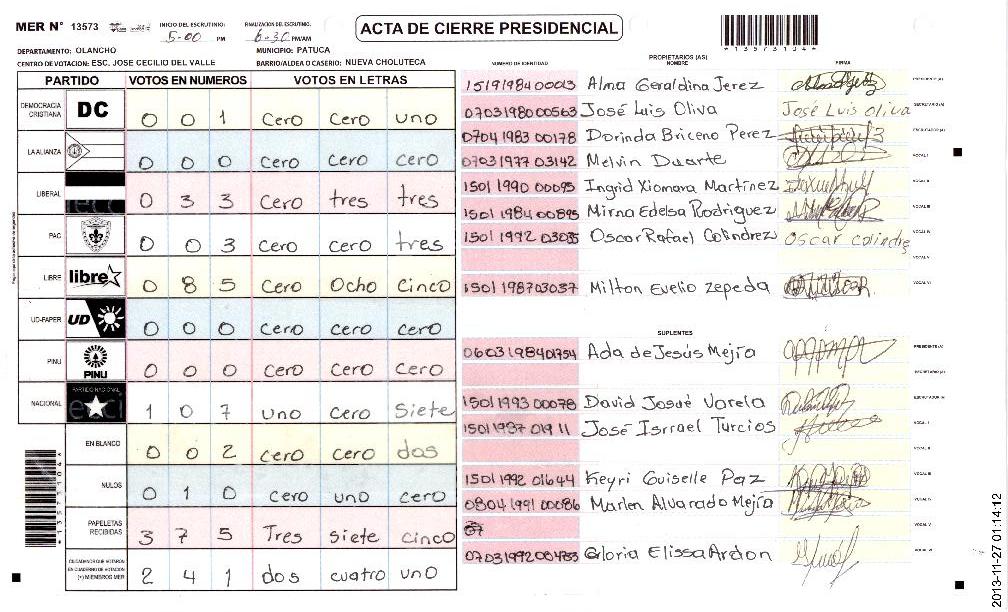 MER N° 13573
INICIO DEL ESCRUTINIO:
5-00 PM
FINALIZACION DEL ESCRUTINIO.
6-30 PM/AM
ACTA DE CIERRE PRESIDENCIAL
DEPARTAMENTO: OLANCHO
MUNICIPIO: PATUCA
CENTRO DE VOTACION: ESC. JOSE CECILIO DEL VALLE
BARRIO/ALDEA O CASERIO: NUEVA CHOLUTECA
PARTIDO VOTOS EN NUMEROS VOTOS EN LETRAS
DEMOCRACIA CRISTIANA DC 0 0 1 Cero Cero uno
LA ALIANZA 0 0 0 cero cero cero
LIBERAL 0 3 3 Cero tres tres
PAC 0 0 3 Cero cero tres
LIBRE libre 0 8 5 Cero Ocho Cinco
UD-FAPER UD 0 0 0 Cero Cero cero
PINU PINU 0 0 0 Cero Cero Cero
NACIONAL PARTIDO NACIONAL 1 0 7 uno cero Siete
EN BLANCO 0 0 2 cero cero dos
NULOS 0 1 0 cero uno cero
PAPELETAS RECIBIDAS 3 7 5 Tres siete cinco
CIUDADANOS QUE VOTARON EN CUADERNO DE VOTACION (+) MIEMBROS MER 2 4 1 dos cuatro uno
PROPIETARIOS (AS)
NUMERO DE IDENTIDAD NOMBRE FIRMA
1519198400013 Alma Geraldina Jerez PRESIDENTE(A)
0703198000563 José Luis Oliva José Luis oliva SECRETARIO(A)
0704 1983 00178 Dorinda Briceno Perez ESCRUTADOR(A)
0703 1977 03142 Melvin Duarte VOCAL I
1501 1990 00095 Ingrid Xiomara Martínez VOCAL II
1501 1984 00895 Mirna Edelsa Rodriguez VOCAL III
1501 1992 03035 Oscar Rafael Colindrez Oscar colindres VOCAL IV
VOCAL V
1501 198703037 Milton Evelio Zepeda VOCAL VI
SUPLENTES
0603198401754 Ada de Jesús Mejía PRESIDENTE(A)
SECRETARIO(A)
1501 1993 00078 David Josué Varela ESCRUTADOR(A)
1501 1987 019 11 José Isrrael Turcios VOCAL I
VOCAL II
1501 1992 01644 Keyri Guiselle Paz VOCAL III
0804 1991 00086 Marlen Alvarado Mejía VOCAL IV
VOCAL V
0703 1992 00433 Gloria Elissa Ardon VOCAL VI
2013-11-27 01:14:12